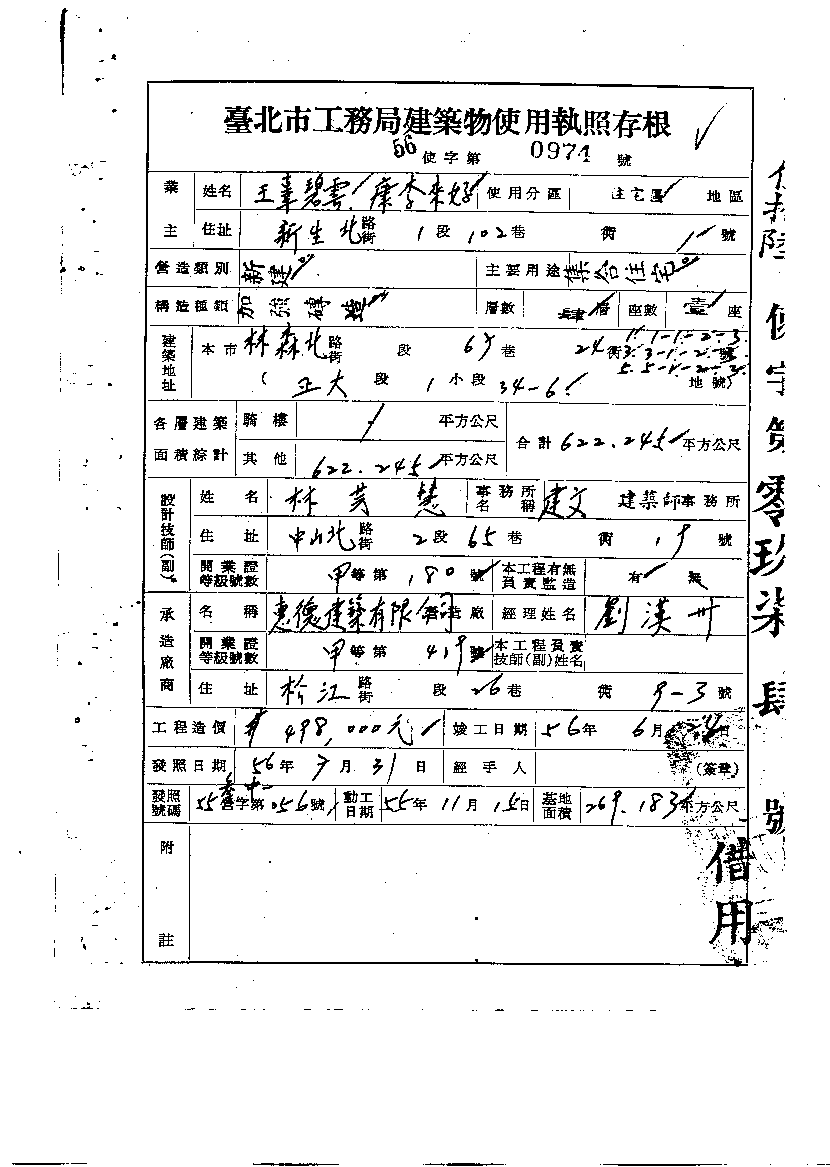 臺北市工務局建築物使用執照存根
56使字第 0974 號
業主 姓名 王辜碧雲 康李來好 使用分區 住宅區 地區
住址 新生北路街 1段 102巷 衖 1號
營造類別 新建 主要用途 集合住宅
構造種類 加強磚造 層數 肆層 座數 壹座
建築地址 本市 林森北路街 段 67巷 24衖 號
(正大段 1小段 34-6 地號)
各層建築面積綜計 騎樓 / 平方公尺 合計 622.245 平方公尺
其他 622.245 平方公尺
設計技師(副) 姓名 林芸慧 事務所名稱 建文 建築師事務所
住址 中山北路街 2段 65巷 衖 19號
開業證等級號數 甲等第 180號 本工程有無員責監造 有 無
承造廠商 名稱 惠德建築有限公司營造廠 經理姓名 劉漢卅
開業證等級號數 甲等第 419號 本工程員責技師(副)姓名
住址 松江路街 段 26巷 衖 9-3號
工程造價 498,000元 竣工日期 56年 6月 日
發照日期 56年 7月 31日 經手人 (簽章)
發照號碼 55營字第056號 動工日期 55年 11月 15日 基地面積 269.183平方公尺
附註
伍拾陸 使字第零玖柒肆號
借用